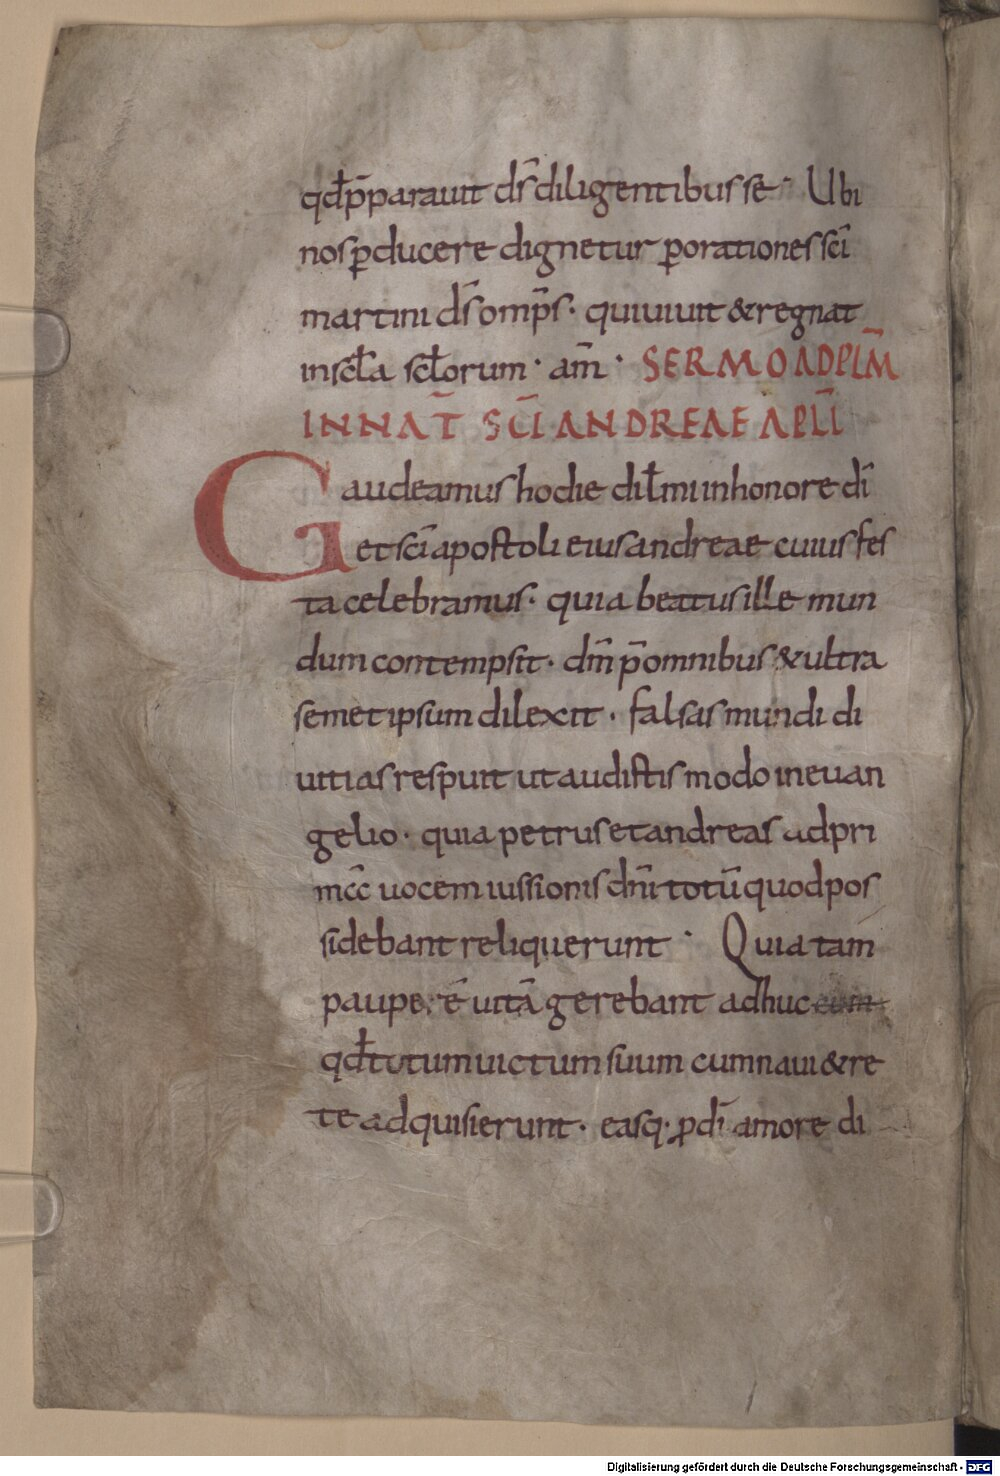 qđp̄parauit ds̄ diligentibus se · Ubi
nos ꝑducere dignetur ꝑ orationes sc̄i
martini ds̄ omp̄s · qui uiuit & regnat
in scl̄a scl̄orum · am̄ · SERMO AD PLM̄
IN NAT̄ SC̄I ANDREAE APLĪ
Gaudeamus hodie dil̄mi in honore dī
et sc̄i apostoli eius andreae cuius fes
ta celebramus · quia beatus ille mun
dum contempsit · dm̄ p̄ omnibus & ultra
semet ipsum dilexit · falsas mundi di
uitias respuit ut audistis modo in euan
gelio · quia petrus et andreas ad pri
mc̄c uocem iussionis dn̄i totū quod pos
sidebant reliquerunt · Quia tam
paupe,rē uitā gerebant adhuc
qđ totum uictum suum cum naui & re
te adquisierunt · easq· ꝑ dī amore di
Digitalisierung gefördert durch die Deutsche Forschungsgemeinschaft - DFG